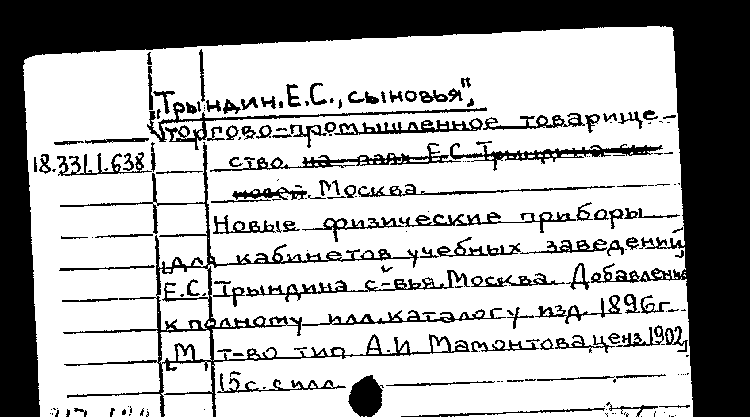 „Трындин, Е.С., сыновья",
торгово-промышленное товарище-
18.331.1.638 ство на паях Е.С. Трындина сы-
новей Москва.
Новые физические приборы
для кабинетов учебных заведений
Е.С. Трындина с-вья. Москва. Добавление
к полному илл. каталогу изд. 1896г.
[М], т-во тип. А.И. Мамонтова, ценз. 1902,
15с. с илл.